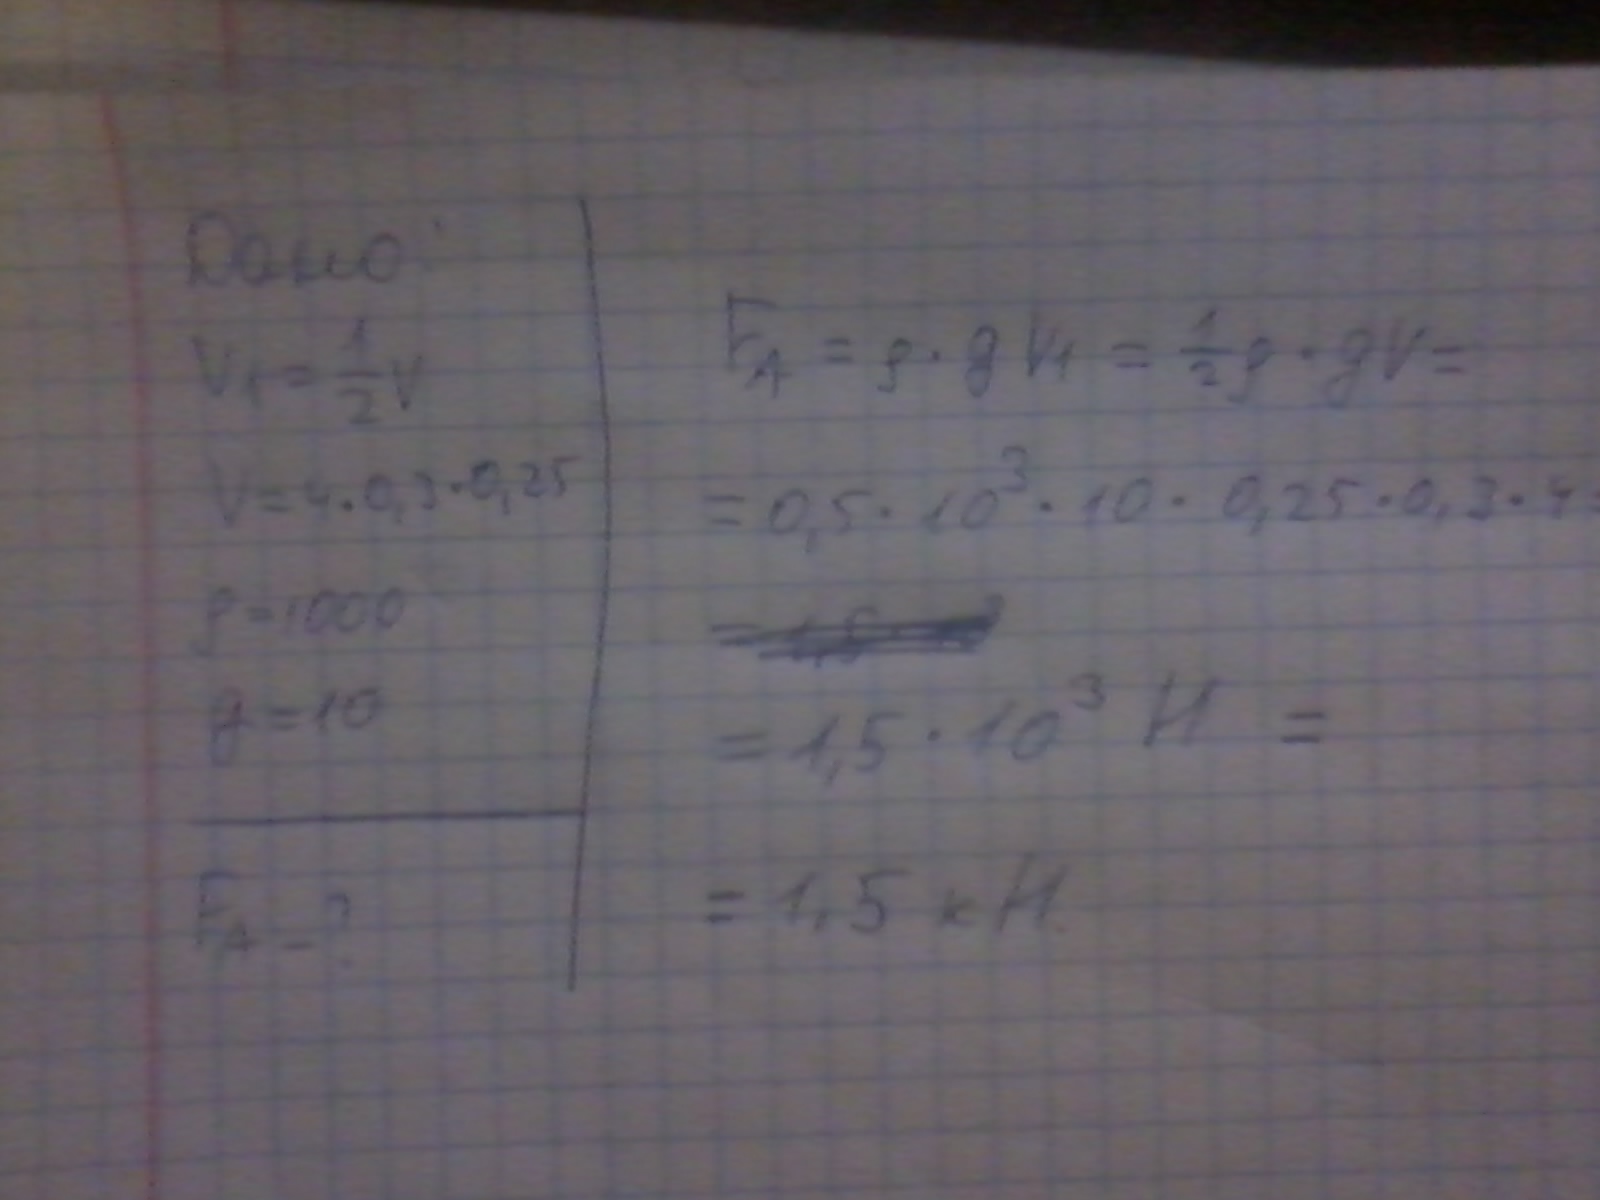 Дано:
V₁ = 1/2 V
V = 4 · 0,3 · 0,25
ρ = 1000
g = 10
F_A - ?
F_A = ρ · g V₁ = 1/2 ρ · g V =
= 0,5 · 10³ · 10 · 0,25 · 0,3 · 4 =
= 1,5 · 10³ Н =
= 1,5 кН